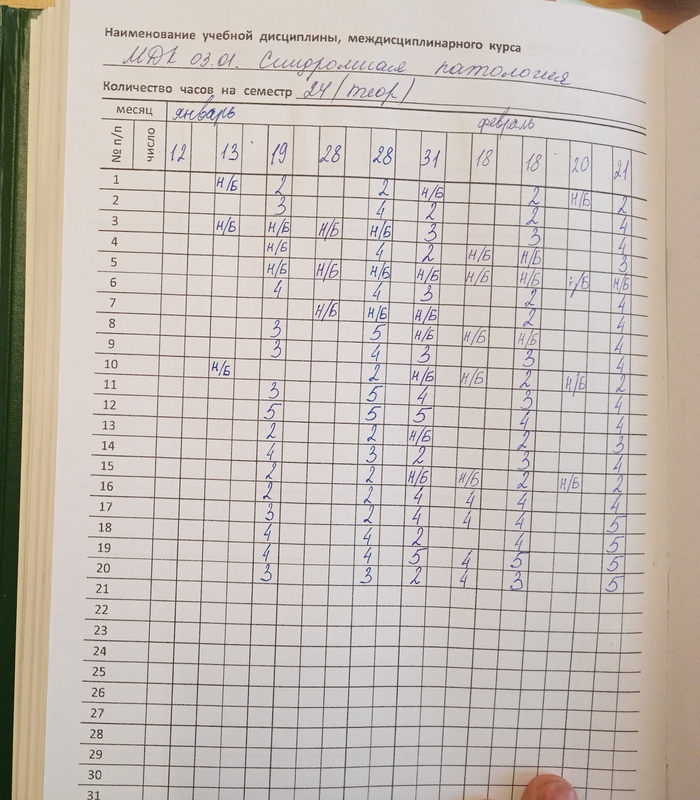 Наименование учебной дисциплины, междисциплинарного курса
МДК 03.01. Синдромная патология
Количество часов на семестр 24 (теор)
месяц январь февраль
№ п/п число 12 13 19 28 28 31 18 18 20 21
1 Н/Б 2 2 Н/Б 2 Н/Б 2
2 3 4 2 2 4
3 Н/Б Н/Б Н/Б Н/Б 3 3 4
4 Н/Б 4 2 Н/Б Н/Б 3
5 Н/Б Н/Б Н/Б Н/Б Н/Б Н/Б Н/Б Н/Б
6 4 4 3 2 4
7 Н/Б Н/Б Н/Б 2 4
8 3 5 Н/Б Н/Б Н/Б 4
9 3 4 3 3 4
10 Н/Б 2 Н/Б Н/Б 2 Н/Б 2
11 3 5 4 3 4
12 5 5 5 4 4
13 2 2 Н/Б 2 3
14 4 3 2 3 4
15 2 2 Н/Б Н/Б 2 Н/Б 2
16 2 2 4 4 4 4
17 3 2 4 4 4 5
18 4 4 2 4 5
19 4 4 5 4 5 5
20 3 3 2 4 3 5
21
22
23
24
25
26
27
28
29
30
31